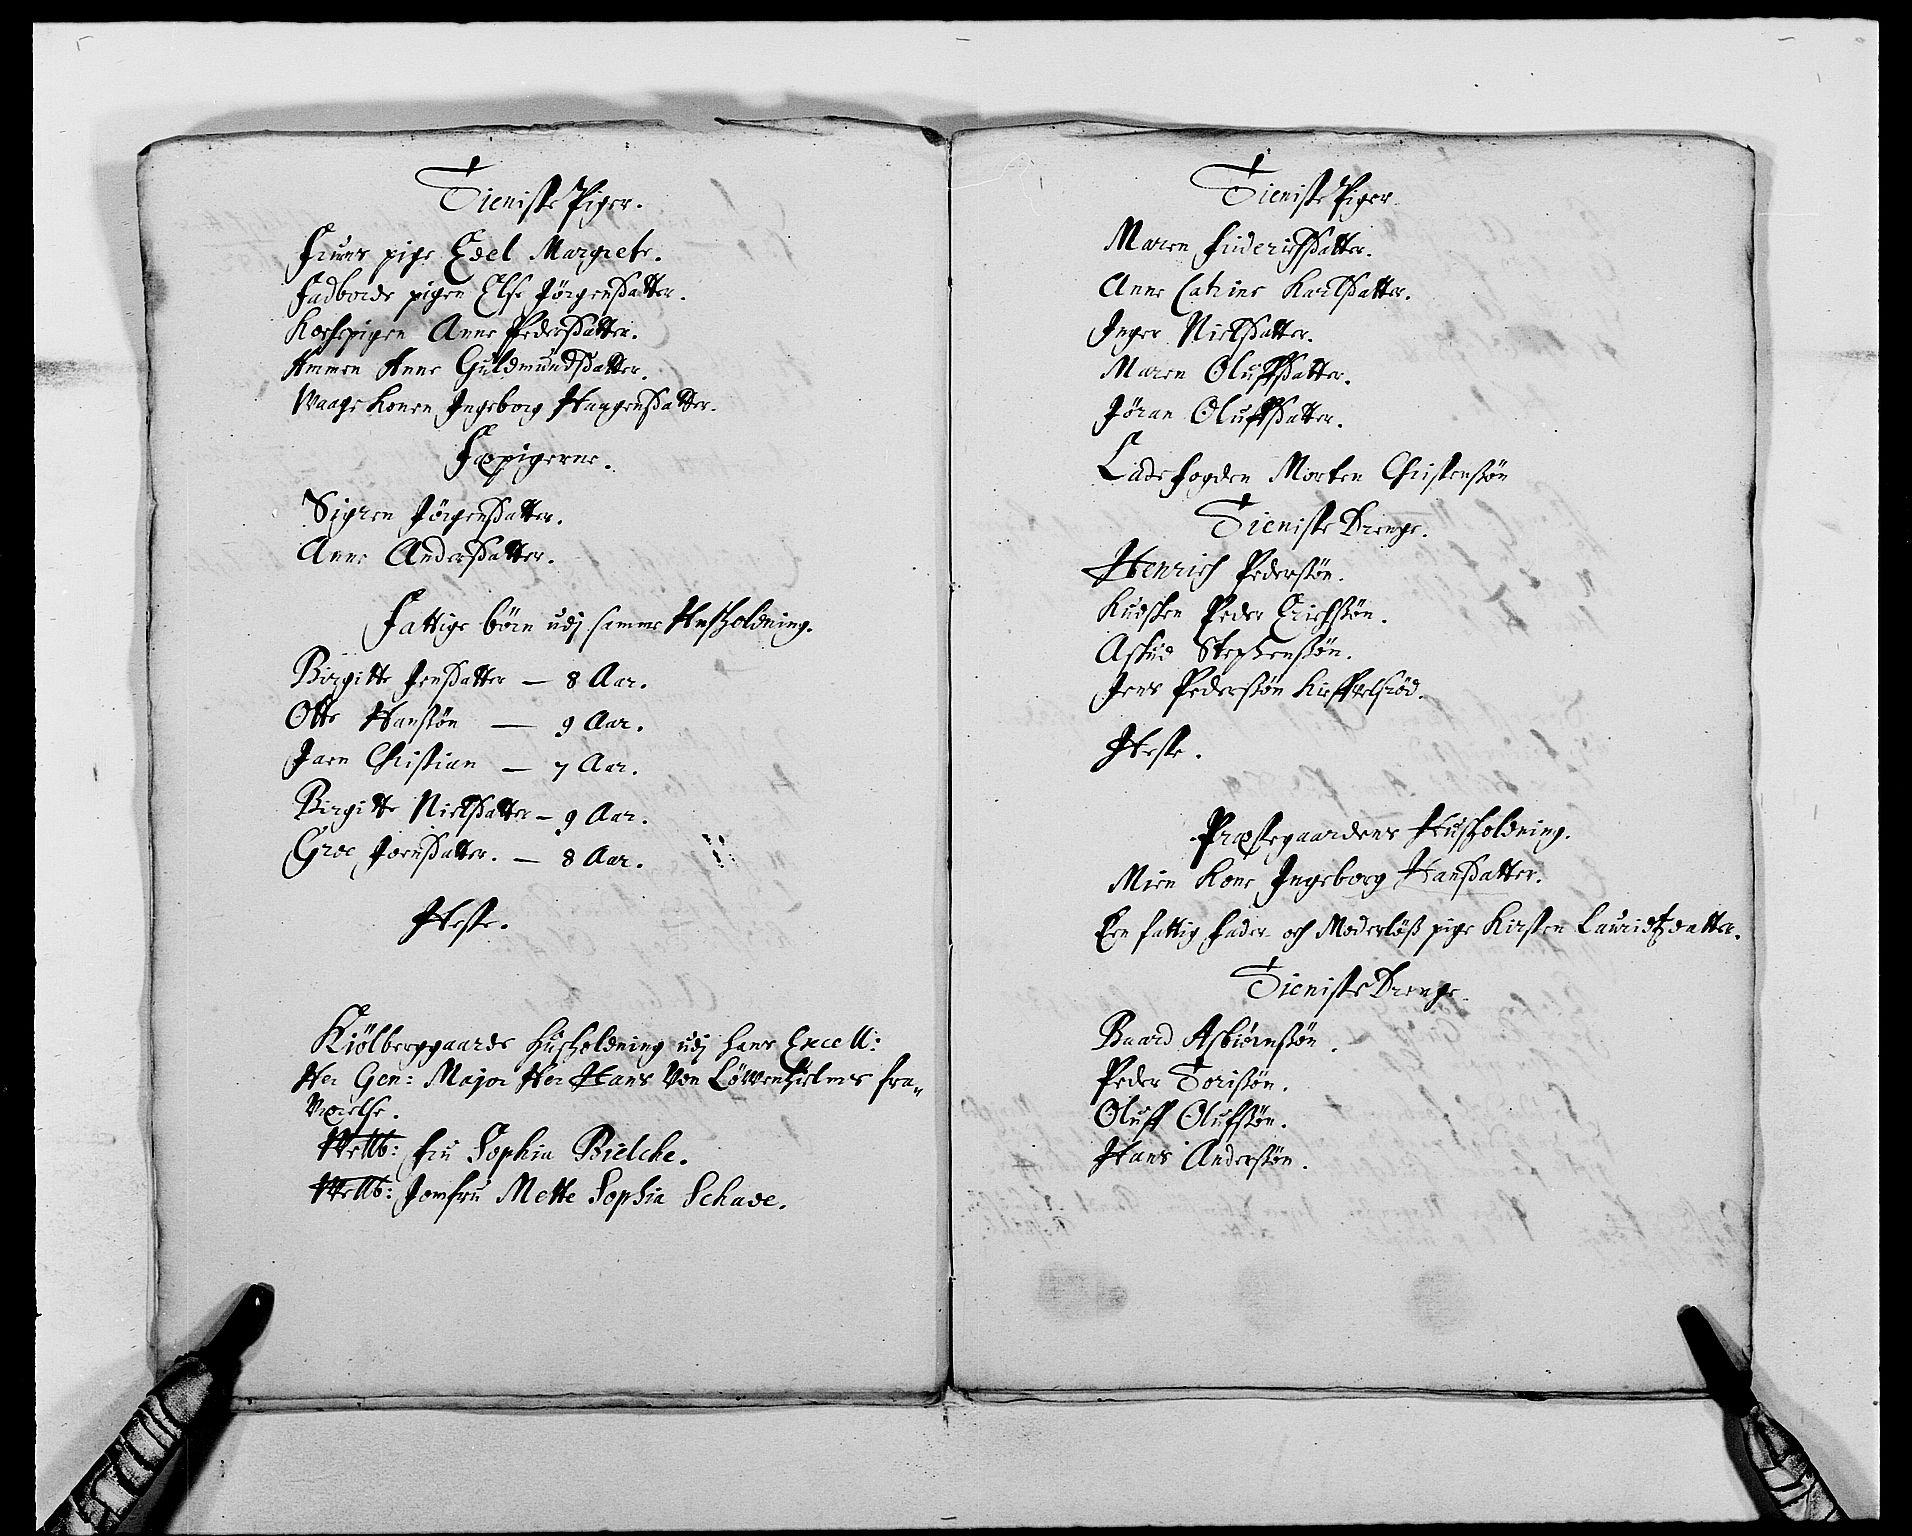 Tieniste Piger.
Fruens pige Edel Margrete.
Fadbords pigen Else Jörgensdatter.
Kochepigen Anne Pedersdatter.
Ammen Anne Guldmundsdatter.
Waage Konen Ingeborg Haagensdatter.
Fæpigerne.
Sigren Jörgensdatter.
Anne Andersdatter.
Fattige börn udj samme Huusholdning.
Birgitte Jensdatter — 8 Aar.
Otte Hansön — 9 Aar.
Jaen Christian — 7 Aar.
Birgitte Nielsdatter — 9 Aar.
Groe Joensdatter. — 8 Aar.
Heste.
Kiölberggaards Husholdning udj hans Excell:
Her Gen: Major Her Hans Von Löwenhielmes fra„
Værelse.
Welb: fru Sophia Bielche.
Welb: Jomfru Mette Sophia Schade.
Tieniste Piger.
Maren Friderichsdatter.
Anne Catrine Karlsdatter.
Inger Nielsdatter.
Maren Oluffsdatter.
Jöran Oluffsdatter.
Ladefogden Morten Christensön
Tieniste Drenge.
Henrich Pedersön.
Kudsken Peder Erichsön.
Stephensön.
Jens Pedersön
Heste.
Præstegaardens Husholdning.
Min Kone Ingeborg Hansdatter.
Een fattig Fader och Moderlöß pige Kirsten Lauridtzdatter.
Tieniste Drenge.
Baard Asbiörnsön.
Peder Torisön.
Oluff Olufsön.
Hans Andersön.